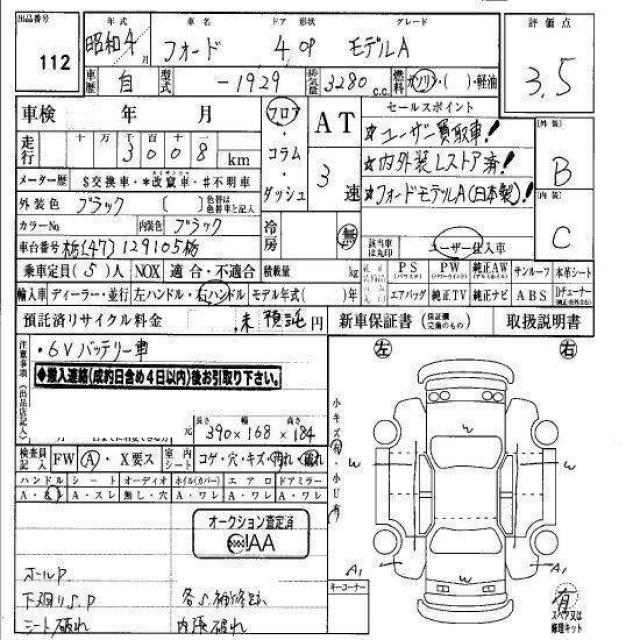 出品番号 112
年式 昭和4年 月
車名 フォード
ドア 形状 4 OP
グレード モデルA
評価点 3.5
車歴 自
型式 -1929
排気量 3280 c.c.
燃料 ガソリン・( )・軽油
車検 年 月
走行 十 万 千 百 十 一
3008 km
メーター歴 S交換車・*改竄車・#不明車
外装色 ブラック ( ) 色替は色替車と記入
カラーNo. 内装色 ブラック
車台番号 栃(47)129105栃
フロア・コラム・ダッシュ
AT
3 速
冷房 無
セールスポイント
☆ユーザー買取車!
☆内外装レストア済!
☆フォードモデルA(日本製)!
該当車は丸印 ユーザー仕入車
外装 B
内装 C
乗車定員(5)人 NOX 適合・不適合 積載量 kg
純正 PS PW 純正AW サンルーフ 本革シート
輸入車 ディーラー・並行 左ハンドル・右ハンドル モデル年式( )年
エアバッグ 純正TV 純正ナビ ABS
預託済リサイクル料金 未預託 円
新車保証書(保証欄完備のもの) 取扱説明書
注意事項(出品店記入)
・6Vバッテリー車
◆搬入連絡(成約日含め4日以内)後お引取り下さい。
長さ 幅 高さ
390×168×184
検査員記入 FW A・X要ス
室内シート コゲ・穴・キズ・汚れ・破れ
ハンドル シート オーディオ ホイル(カバー) エアロ ドアミラー
A・ス A・スレ 無し・穴 A・ワレ A・ワレ A・ワレ
オークション査定済
JAAA
ホールP
下廻りS.P 各S.補修跡
シート破れ 内張破れ
左 右
小キズ有・小U有
W
W W
W
A1 A1
キーコーナー
有
スペア又は修理キット